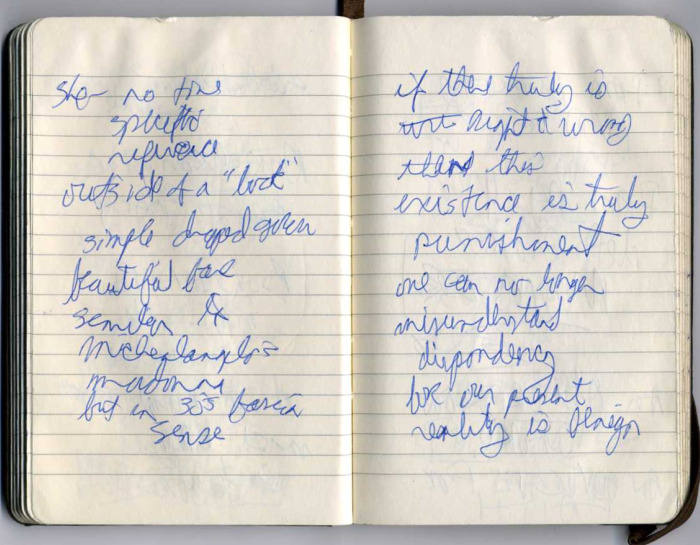 She- no time
specific
reference
outside of a "look"
simple draped gown
beautiful face
similar to
Michelangelo's
madonna
but in 30's
sense
if there truly is
right & wrong
than this
existence is truly
punishment
one can no longer
misunderstand
dispondency
for our present
reality is benign